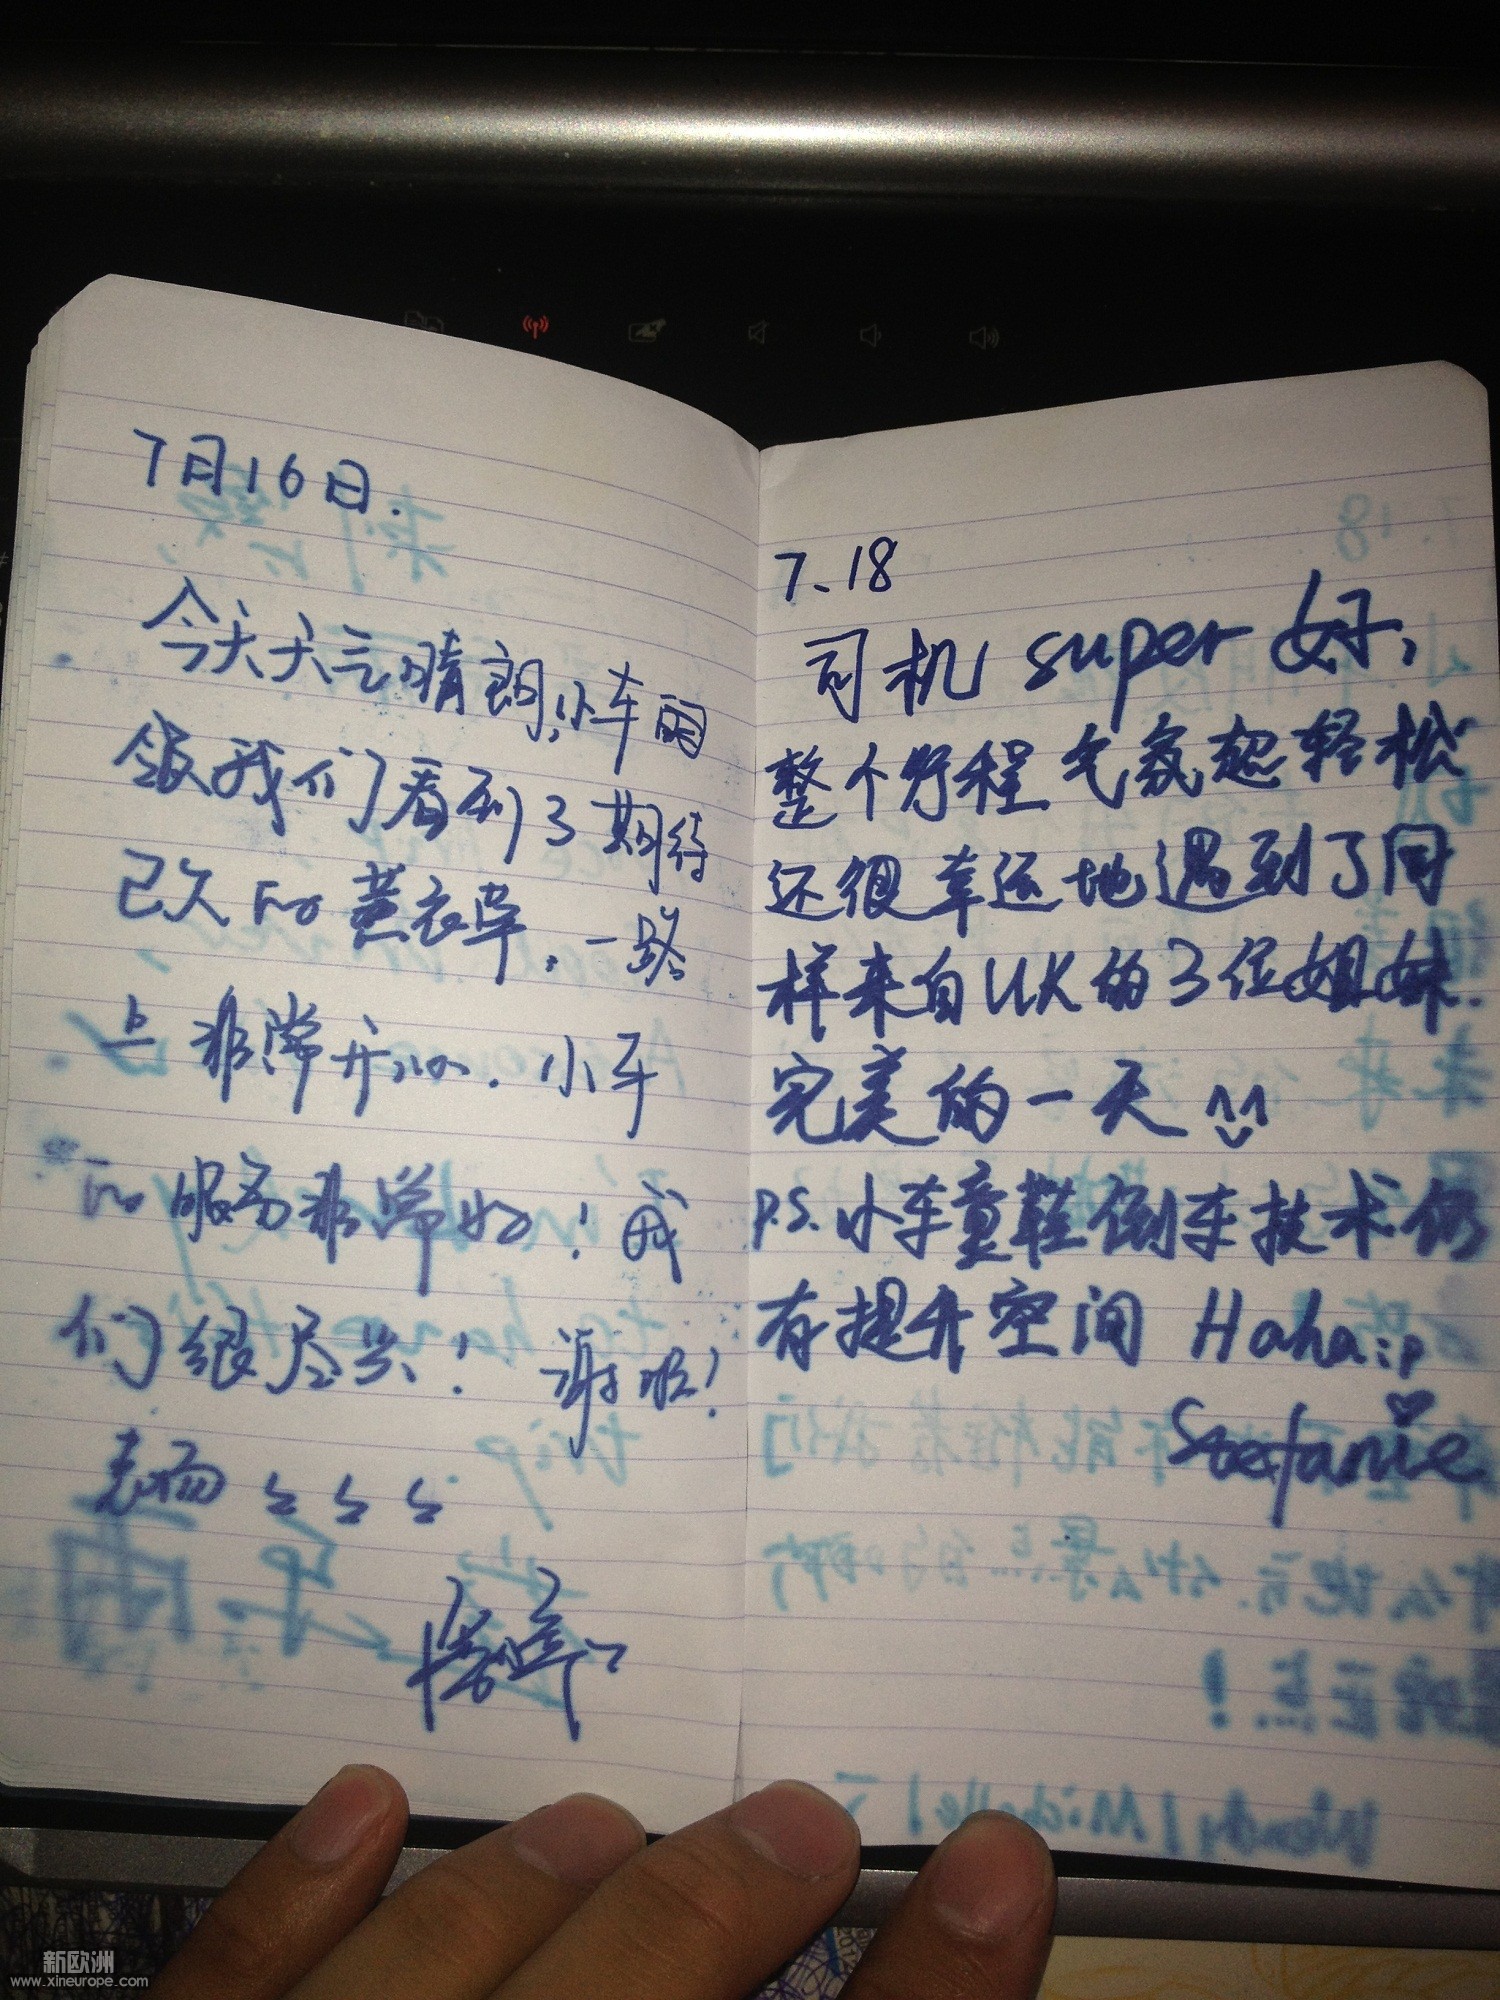 7月16日.
今天天气晴朗,小车同
领我们看到了期待
已久的薰衣草,一路
上非常开心. 小车
的服务非常好!我
们很尽兴! 谢啦!
7.18
司机 super 好,
整个行程气氛超轻松
还很幸运地遇到了同
样来自UK的3位姐妹.
完美的一天 ^^
P.S. 小车童鞋倒车技术仍
有提升空间 Haha :p
Stefanie
新欧洲
www.xineurope.com